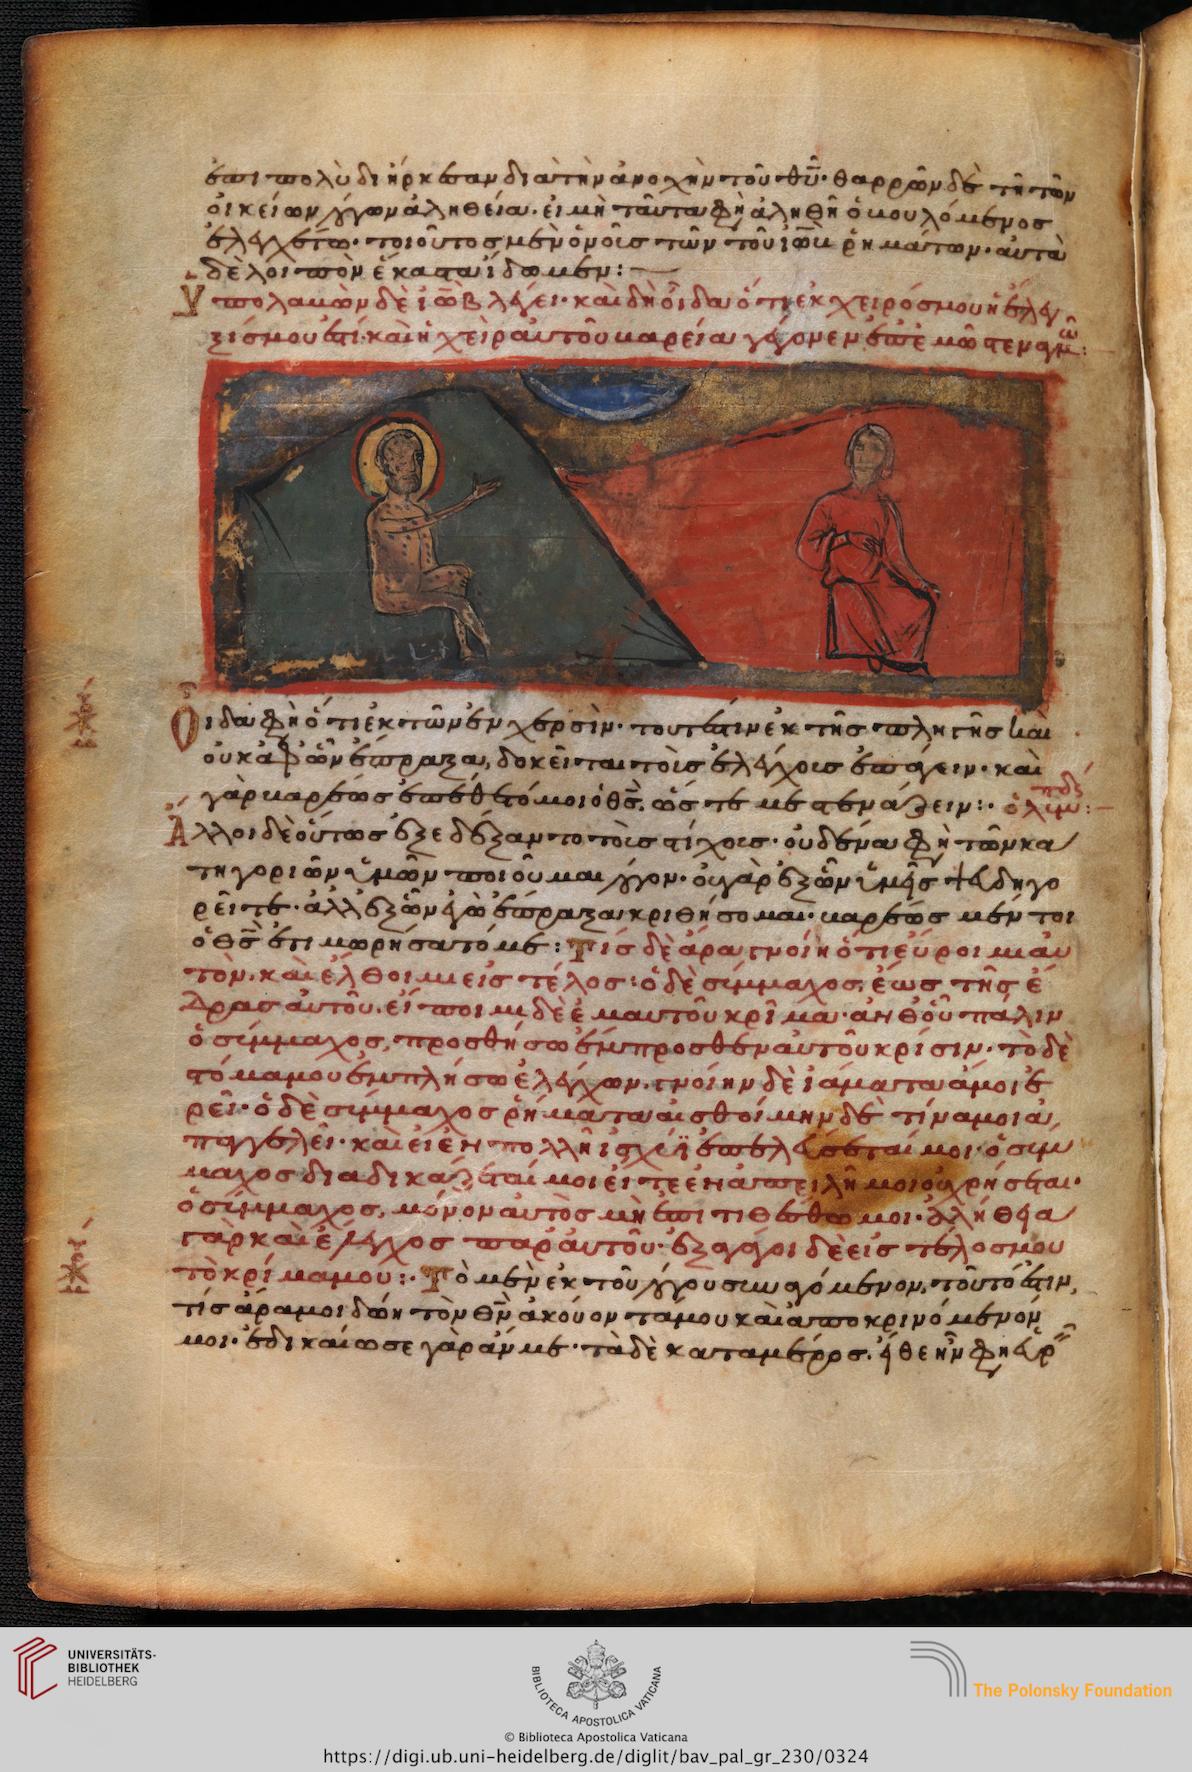 ἐπι πολὺ διήρκεσαν διὰ τὴν ἀνοχὴν τοῦ θῦ· θαρρῶν δὲ τῆ τῶν
οἰκείων λόγων ἀληθεία· εἰ μὴ ταῦτα φὴ ἀληθῆ ὁ βουλόμενος
ἐλεγχέτω· τοιοῦτος μὲν ὁ νοῦς τῶν τοῦ ἰὼβ ῥημάτων· αὐτὰ
δὲ λοιπὸν ἕκαστα ἴδωμεν:
Ὑπολαβὼν δὲ ἰὼβ λέγει· καὶ δὴ οἶδα ὅτι ἐκ χειρός μου ἡ ἔλεγ
ξίς μου ἐστί· καὶ ἡ χεὶρ αὐτοῦ βαρεία γέγονεν ἐπ' ἐμῶ στεναγμῶ:
Οἶδα φὴ ὅτι ἐκ τῶν ἐν χερσὶν· τουτέστιν ἐκ τῆς πληγῆς
οὐκ ἀφ' ὧν ἔπραξα, δοκεῖ ταῦτα τοῖς ἐλέγχοις ἐπάγειν· καὶ
γὰρ βαρέως ἐπέθετό μοι ὁ θς, ὥς τε με στενάζειν:· ὀλυμ
πδ
Ἄλλοι δὲ οὕτως ἐξεδέξαντο τοῖς στίχοις· οὐδένα φὴ τῶν κα
τηγοριῶν ὑμῶν ποιοῦμαι λόγον· οὐ γὰρ ἐξ ὧν ὑμεῖς ψευδηγο
ρεῖτε· ἀλλ' ἐξ ὧν ἐγὼ ἔπραξα κριθήσομαι· βαρέως μέν τοι
ὁ θς ἐτιμωρήσατό με: τίς δὲ ἄρα γνοίη ὅτι εὕροιμι αὐ
τὸν, καὶ ἔλθοιμι εἰς τέλος· ὁ δὲ σύμμαχος, ἕως τῆς ἕ
δρας αὐτοῦ. εἴποιμι δὲ ἐμαυτοῦ κρῖμα· ἀνθ' οὗ πάλιν
ὁ σύμμαχος, προσθήσω ἔμπροσθεν αὐτοῦ κρίσιν· τὸ δὲ
στόμα μου ἐμπλήσω ἐλέγχων. γνοίην δὲ ἰάματα ἅ μοι ἐ
ρεῖ· ὁ δὲ σύμμαχος ῥήματα αἰσθοίμην δὲ τίνα μοι ἀ
παγγελεῖ· καὶ εἰ ἐν πολλῆ ἰσχύϊ ἐπελεύσεταί μοι· ὁ σύμ
μαχος διαδικάζεταί μοι εἴ τε ἐν ἀπειλῆ μοι οὐ χρήσεται·
ὁ σύμμαχος, μόνον αὐτὸς μὴ ἐπιτιθέσθω μοι· ἀλήθεια
γὰρ καὶ ἔλεγχος παρ' αὐτοῦ· ἐξαγάγοι δὲ εἰς τέλος μου
τὸ κρίμα μου:· Τὸ μὲν ἐκ τοῦ λόγου συναγόμενον, τοῦτό ἐστιν,
τίς ἄρα μοι δώη τὸν θν ἀκούοντά μου καὶ ἀποκρινόμενόν
μοι· ἐδικαίωσε γὰρ ἄν με· τὰ δὲ κατὰ μέρος.
UNIVERSITÄTS-
BIBLIOTHEK
HEIDELBERG
BIBLIOTECA APOSTOLICA VATICANA
The Polonsky Foundation
© Biblioteca Apostolica Vaticana
https://digi.ub.uni-heidelberg.de/diglit/bav_pal_gr_230/0324